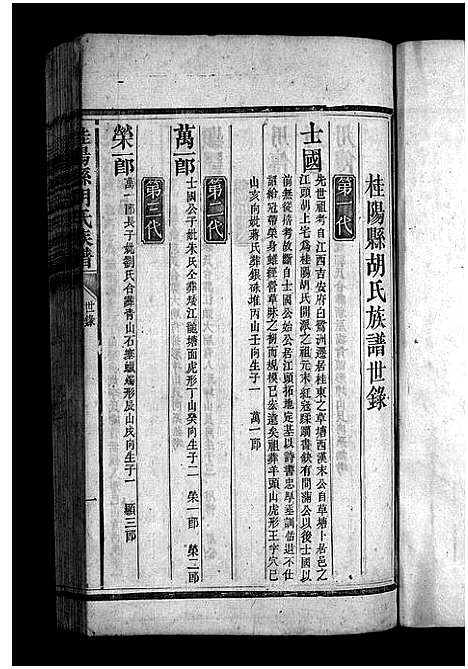 桂陽縣胡氏族譜世錄
第一代
士國
先世祖考自江西吉安府白鷺洲遷居桂東之草塘西漢末公自草塘卜居邑之
江頭胡上宅為桂陽胡氏開派之祖元末紅寇蹂躪書缺有間滿公以後士國以
前無從稽考故斷自士國公始公居江頭拓地定基以詩書忠厚垂訓恬退不仕
詔給冠帶榮身雖經營草昧之初而規模已宏遠矣祖葬羊頭山虎形王字穴巳
山亥向妣蔣氏葬銀硃堆丙山壬向生子一 萬一郎
第二代
萬一郎
士國公子妣朱氏仝葬江龍塘面虎形丁山癸向生子二 榮一郎 榮二郎
第三代
榮一郎
萬一郎長子妣劉氏合葬青山石寨蠟燭形辰山戌向生子一 顯三郎
桂陽縣胡氏族譜
世錄
一